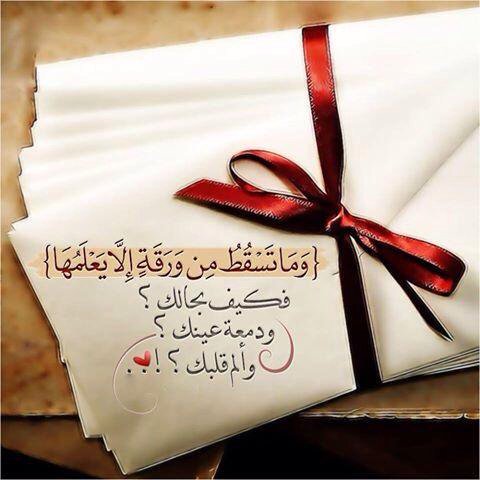 {وَمَا تَسْقُطُ مِن وَرَقَةٍ إِلَّا يَعْلَمُهَا}
فكيف بحالك ؟
ودمعة عينك ؟
وألم قلبك ؟ ! . .